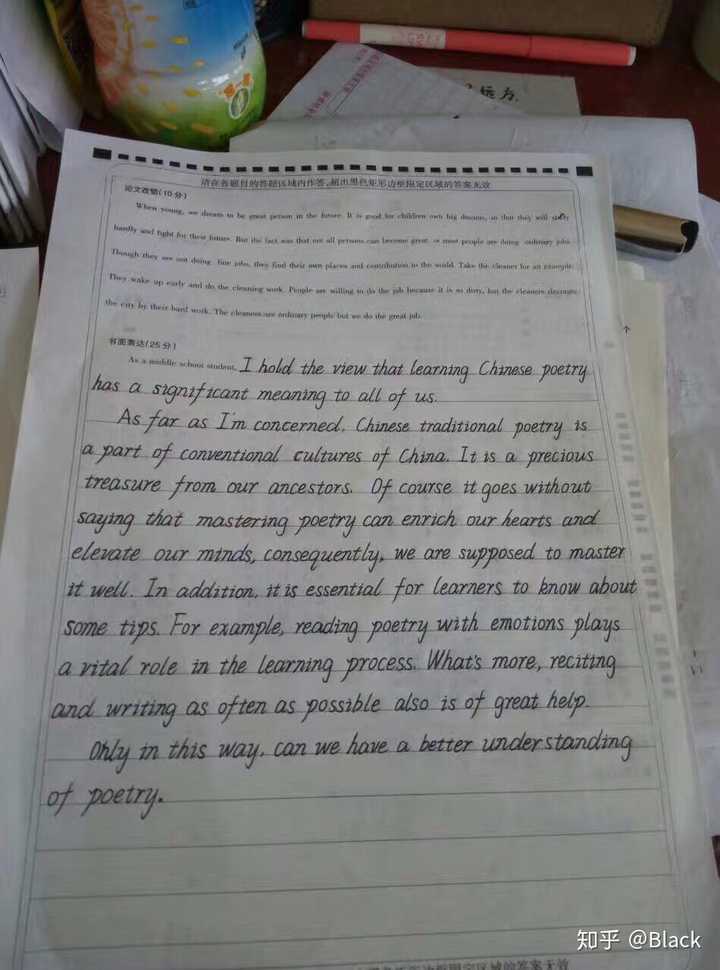 远方
请在各题目的答题区域内作答,超出黑色矩形边框限定区域的答案无效
论文改错(10分)
When young, we dream to be great person in the future. It is good for children own big dreams, so that they will study
hardly and fight for their future. But the fact was that not all persons can become great, or most people are doing ordinary jobs.
Though they are not doing fine jobs, they find their own places and contribution to the world. Take the cleaner for an example.
They wake up early and do the cleaning work. People are willing to do the job because it is so dirty, but the cleaners decorate
the city by their hard work. The cleaners are ordinary people but we do the great job.
书面表达(25分)
As a middle school student, I hold the view that learning Chinese poetry
has a significant meaning to all of us.
As far as I'm concerned, Chinese traditional poetry is
a part of conventional cultures of China. It is a precious
treasure from our ancestors. Of course it goes without
saying that mastering poetry can enrich our hearts and
elevate our minds, consequently, we are supposed to master
it well. In addition, it is essential for learners to know about
some tips. For example, reading poetry with emotions plays
a vital role in the learning process. What's more, reciting
and writing as often as possible also is of great help.
Only in this way, can we have a better understanding
of poetry.
知乎 @Black